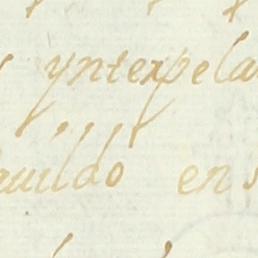 yntexpela
auildo en s